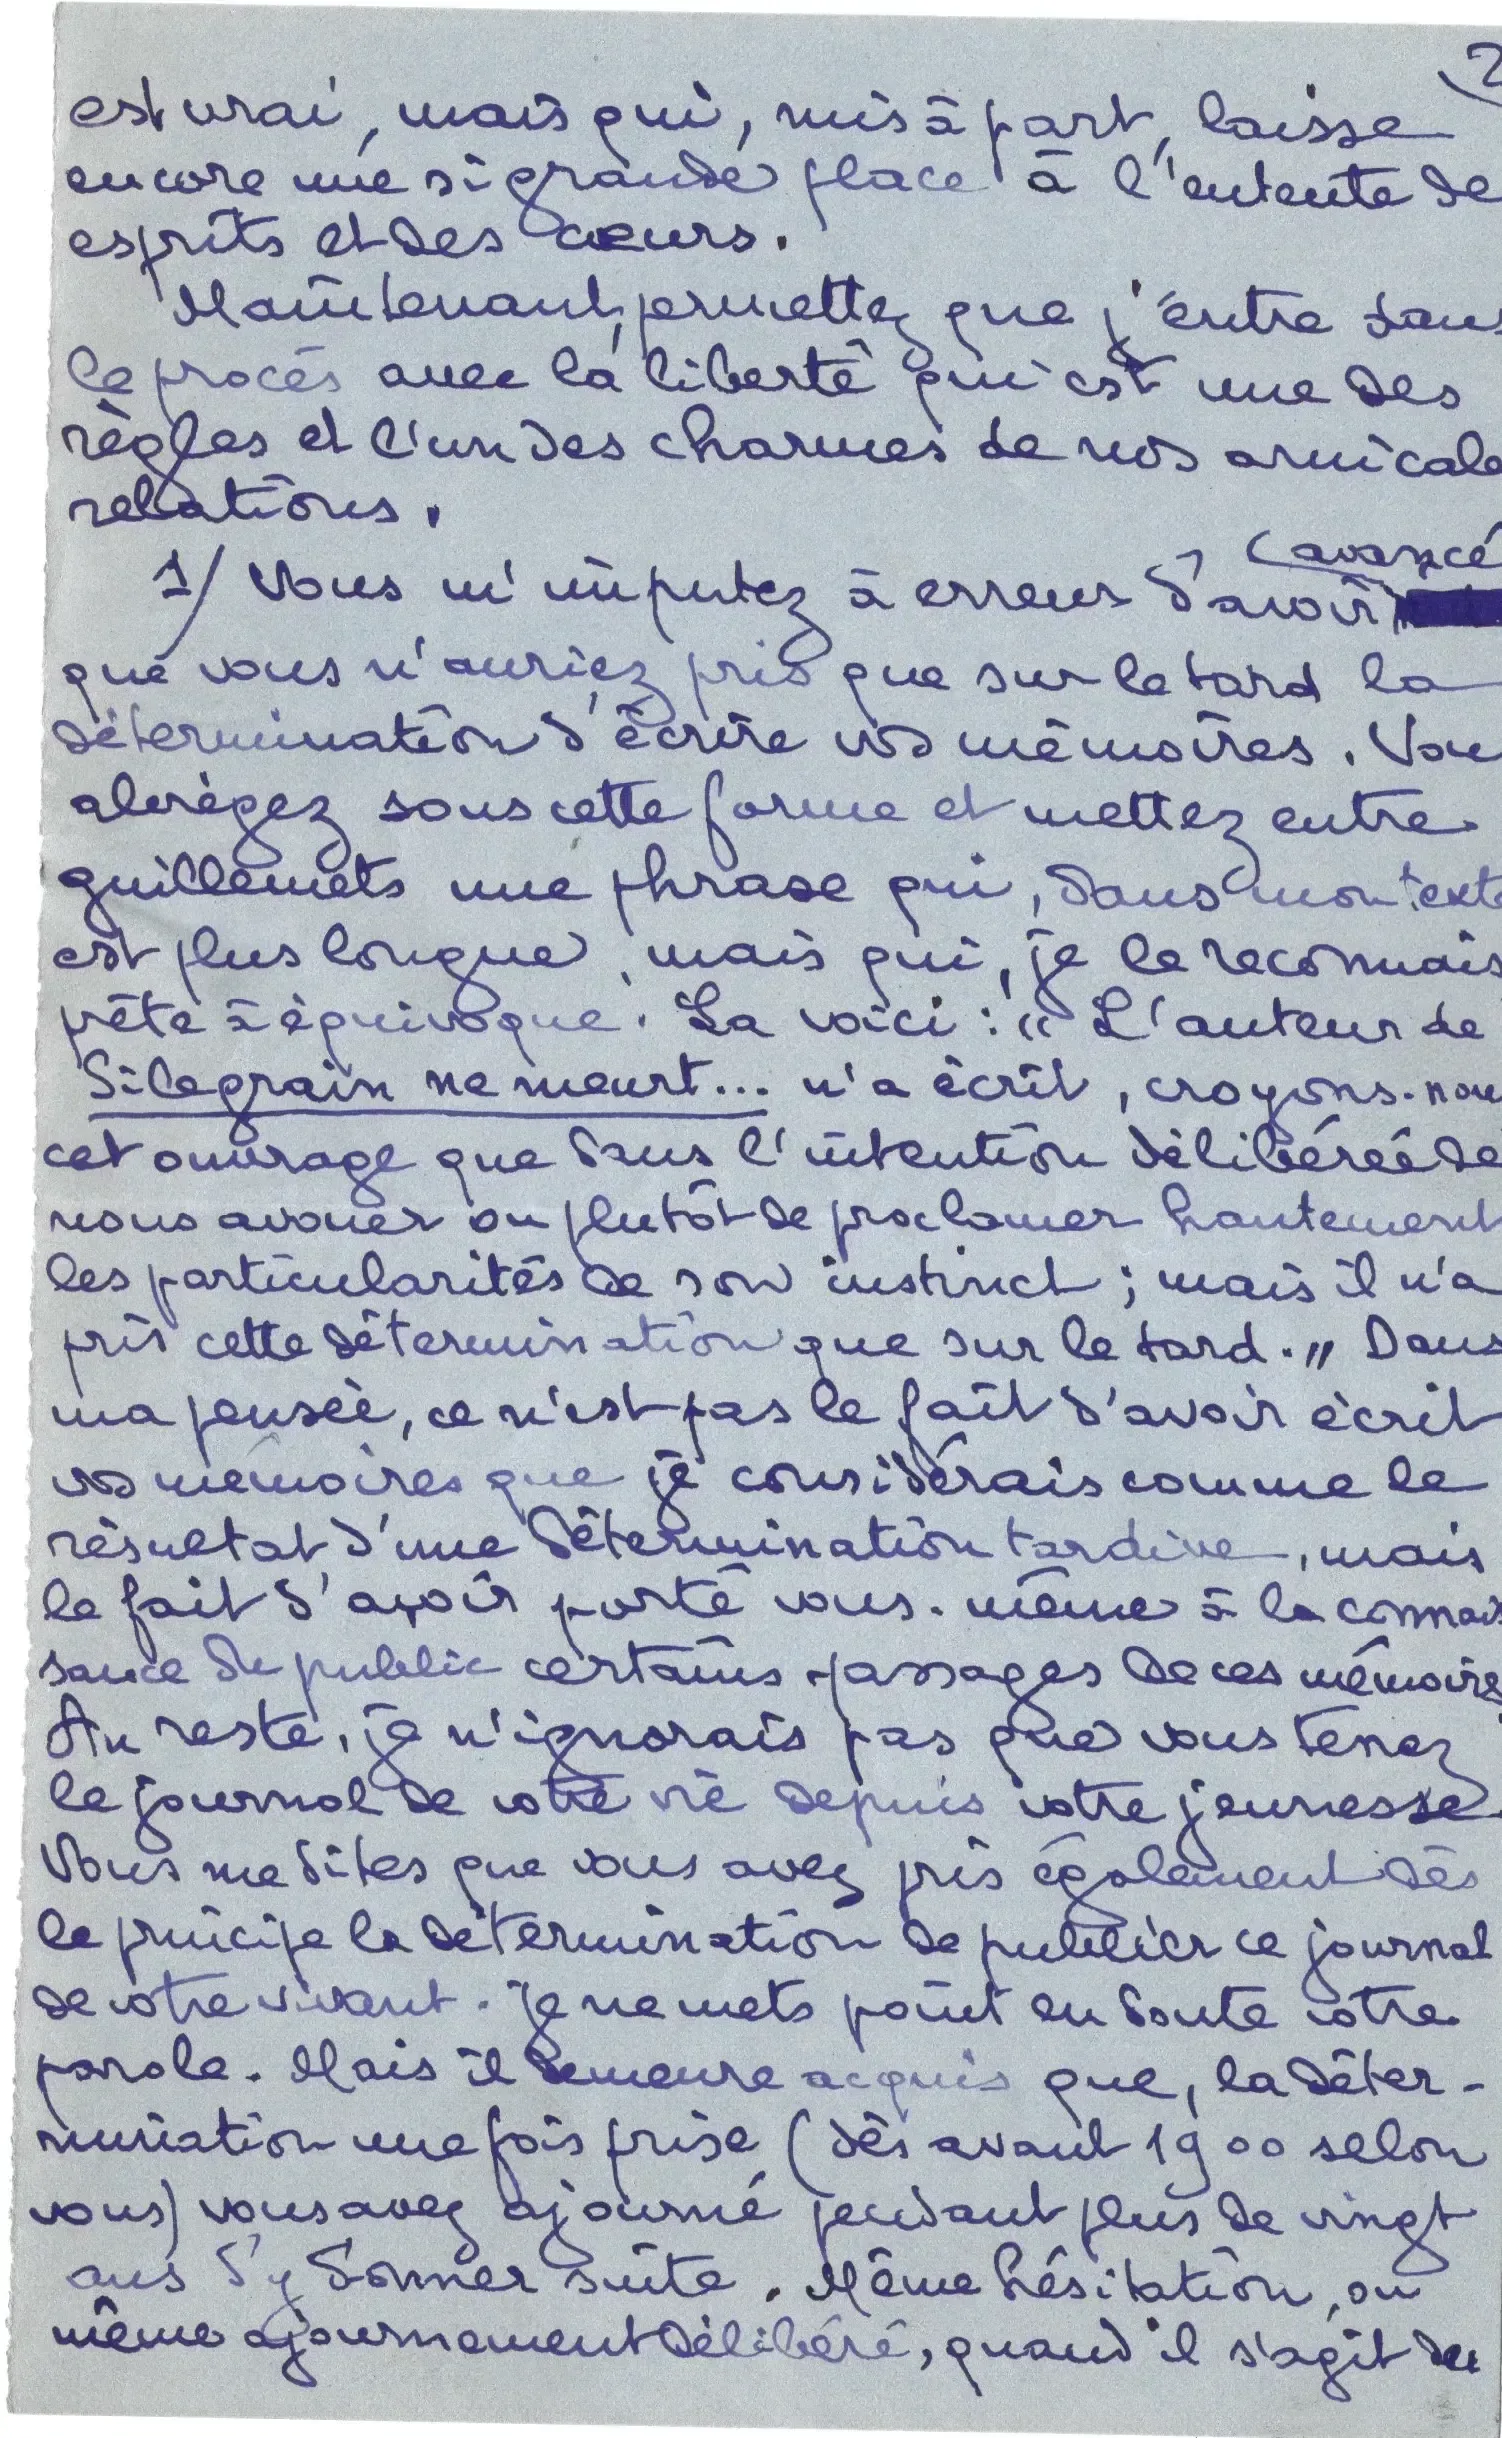 2
est vrai, mais qui, mis à part, laisse
encore une si grande place à l'entente de
esprits et des cœurs.
Maintenant, permettez que j'entre dans
le procès avec la liberté qui est une des
règles et l'un des charmes de nos amicale
relations.
avancé
1/ Vous m'imputez à erreur d'avoir
que vous n'auriez pris que sur le tard la
détermination d'écrire vos mémoires. Vou
abrégez sous cette forme et mettez entre
guillemets une phrase qui, dans mon texte
est plus longue, mais qui, je le reconnais
prête à équivoque. La voici : " L'auteur de
Si le grain ne meurt... n'a écrit, croyons-nou
cet ouvrage que dans l'intention délibérée de
nous avouer ou plutôt de proclamer hautement
les particularités de son instinct ; mais il n'a
pris cette détermination que sur le tard. " Dans
ma pensée, ce n'est pas le fait d'avoir écrit
vos mémoires que je considérais comme le
résultat d'une détermination tardive, mais
le fait d'avoir porté vous-même à la connais
sance du public certains passages de ces mémoire
Au reste, je n'ignorais pas que vous tenez
le journal de votre vie depuis votre jeunesse.
Vous me dites que vous avez pris également dès
le principe la détermination de publier ce journal
de votre vivant. Je ne mets point en doute votre
parole. Mais il demeure acquis que, la déter-
mination une fois prise (dès avant 1900 selon
vous) vous avez ajourné pendant plus de vingt
ans d'y donner suite. Même hésitation, ou
même ajournement délibéré, quand il s'agit de